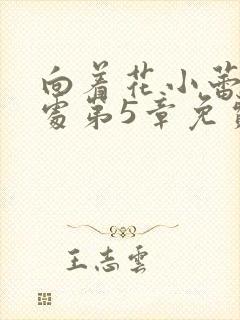 向着花小蕾
处第5章免费
王志云